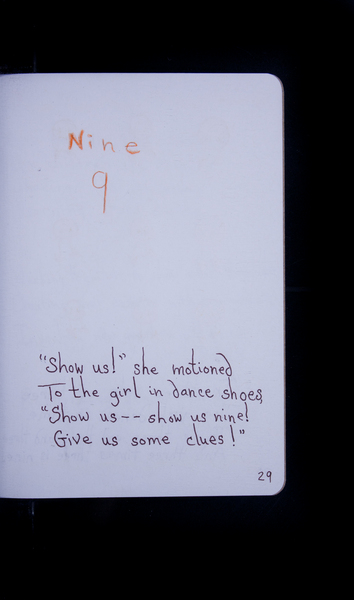 Nine
9
"Show us!" she motioned
To the girl in dance shoes,
"Show us-- show us nine!
Give us some clues!"
29